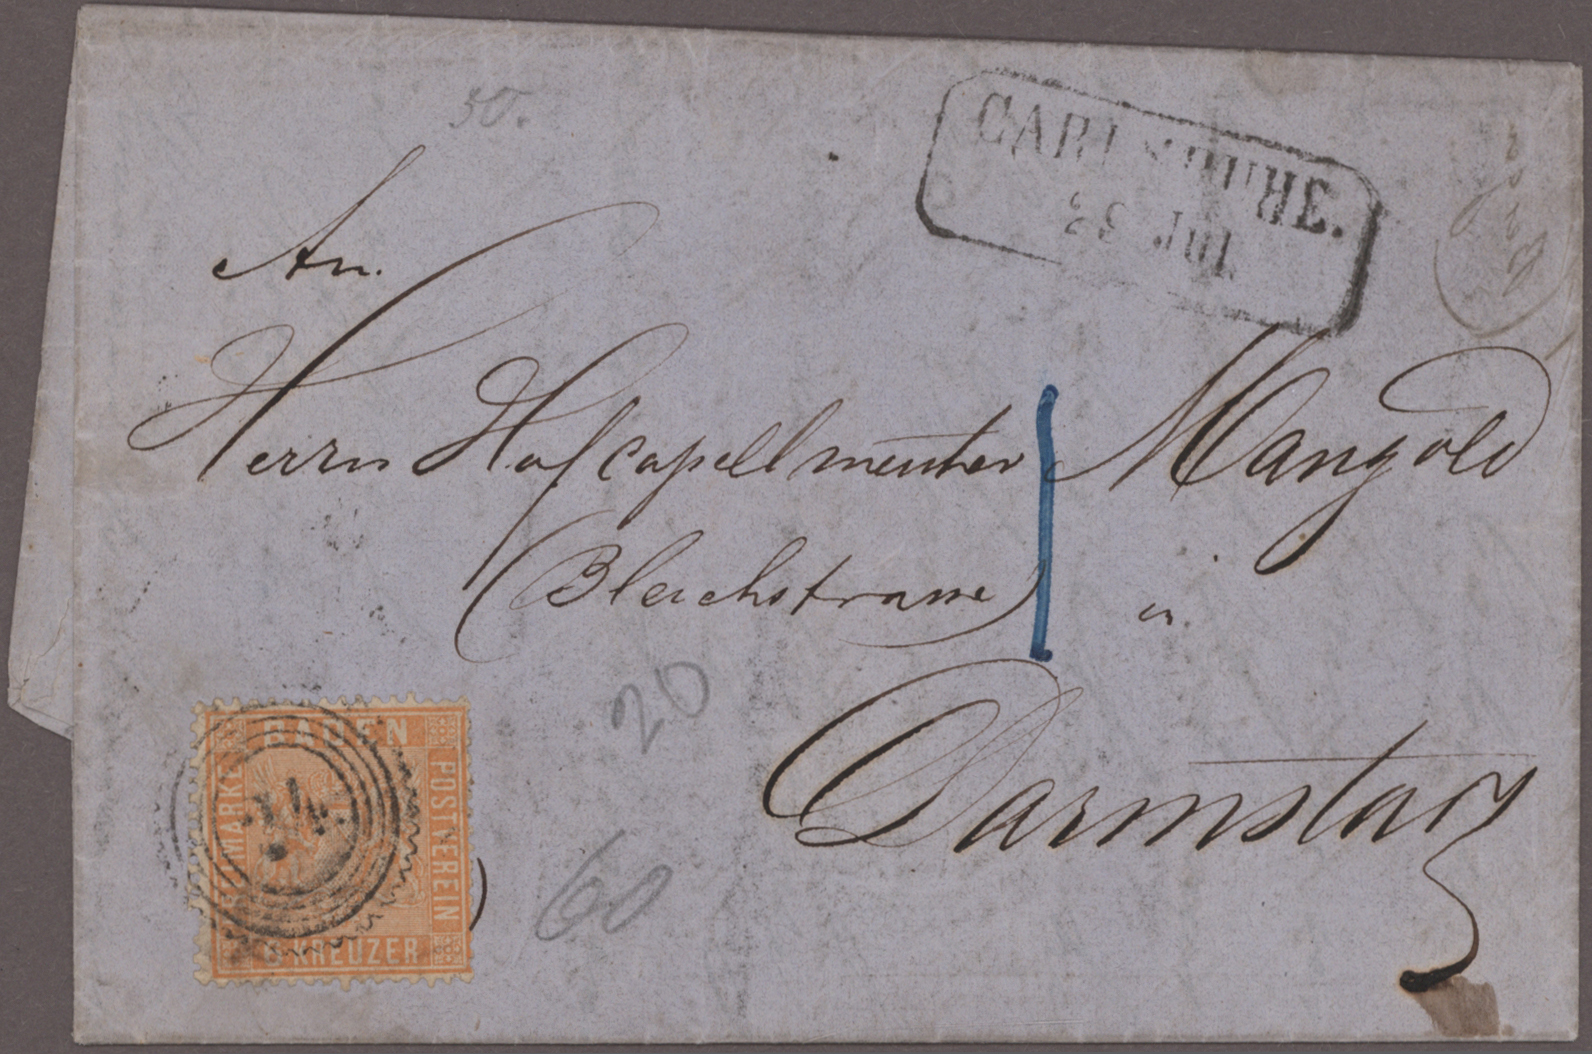 50.
CARLSRUHE.
29 Jul
An.
Herrn Hofcapellmeister Mangold
(Bleichstrasse) in
Darmstadt
20
60
BADEN
FREIMARKE
POSTVEREIN
6 KREUZER
24.